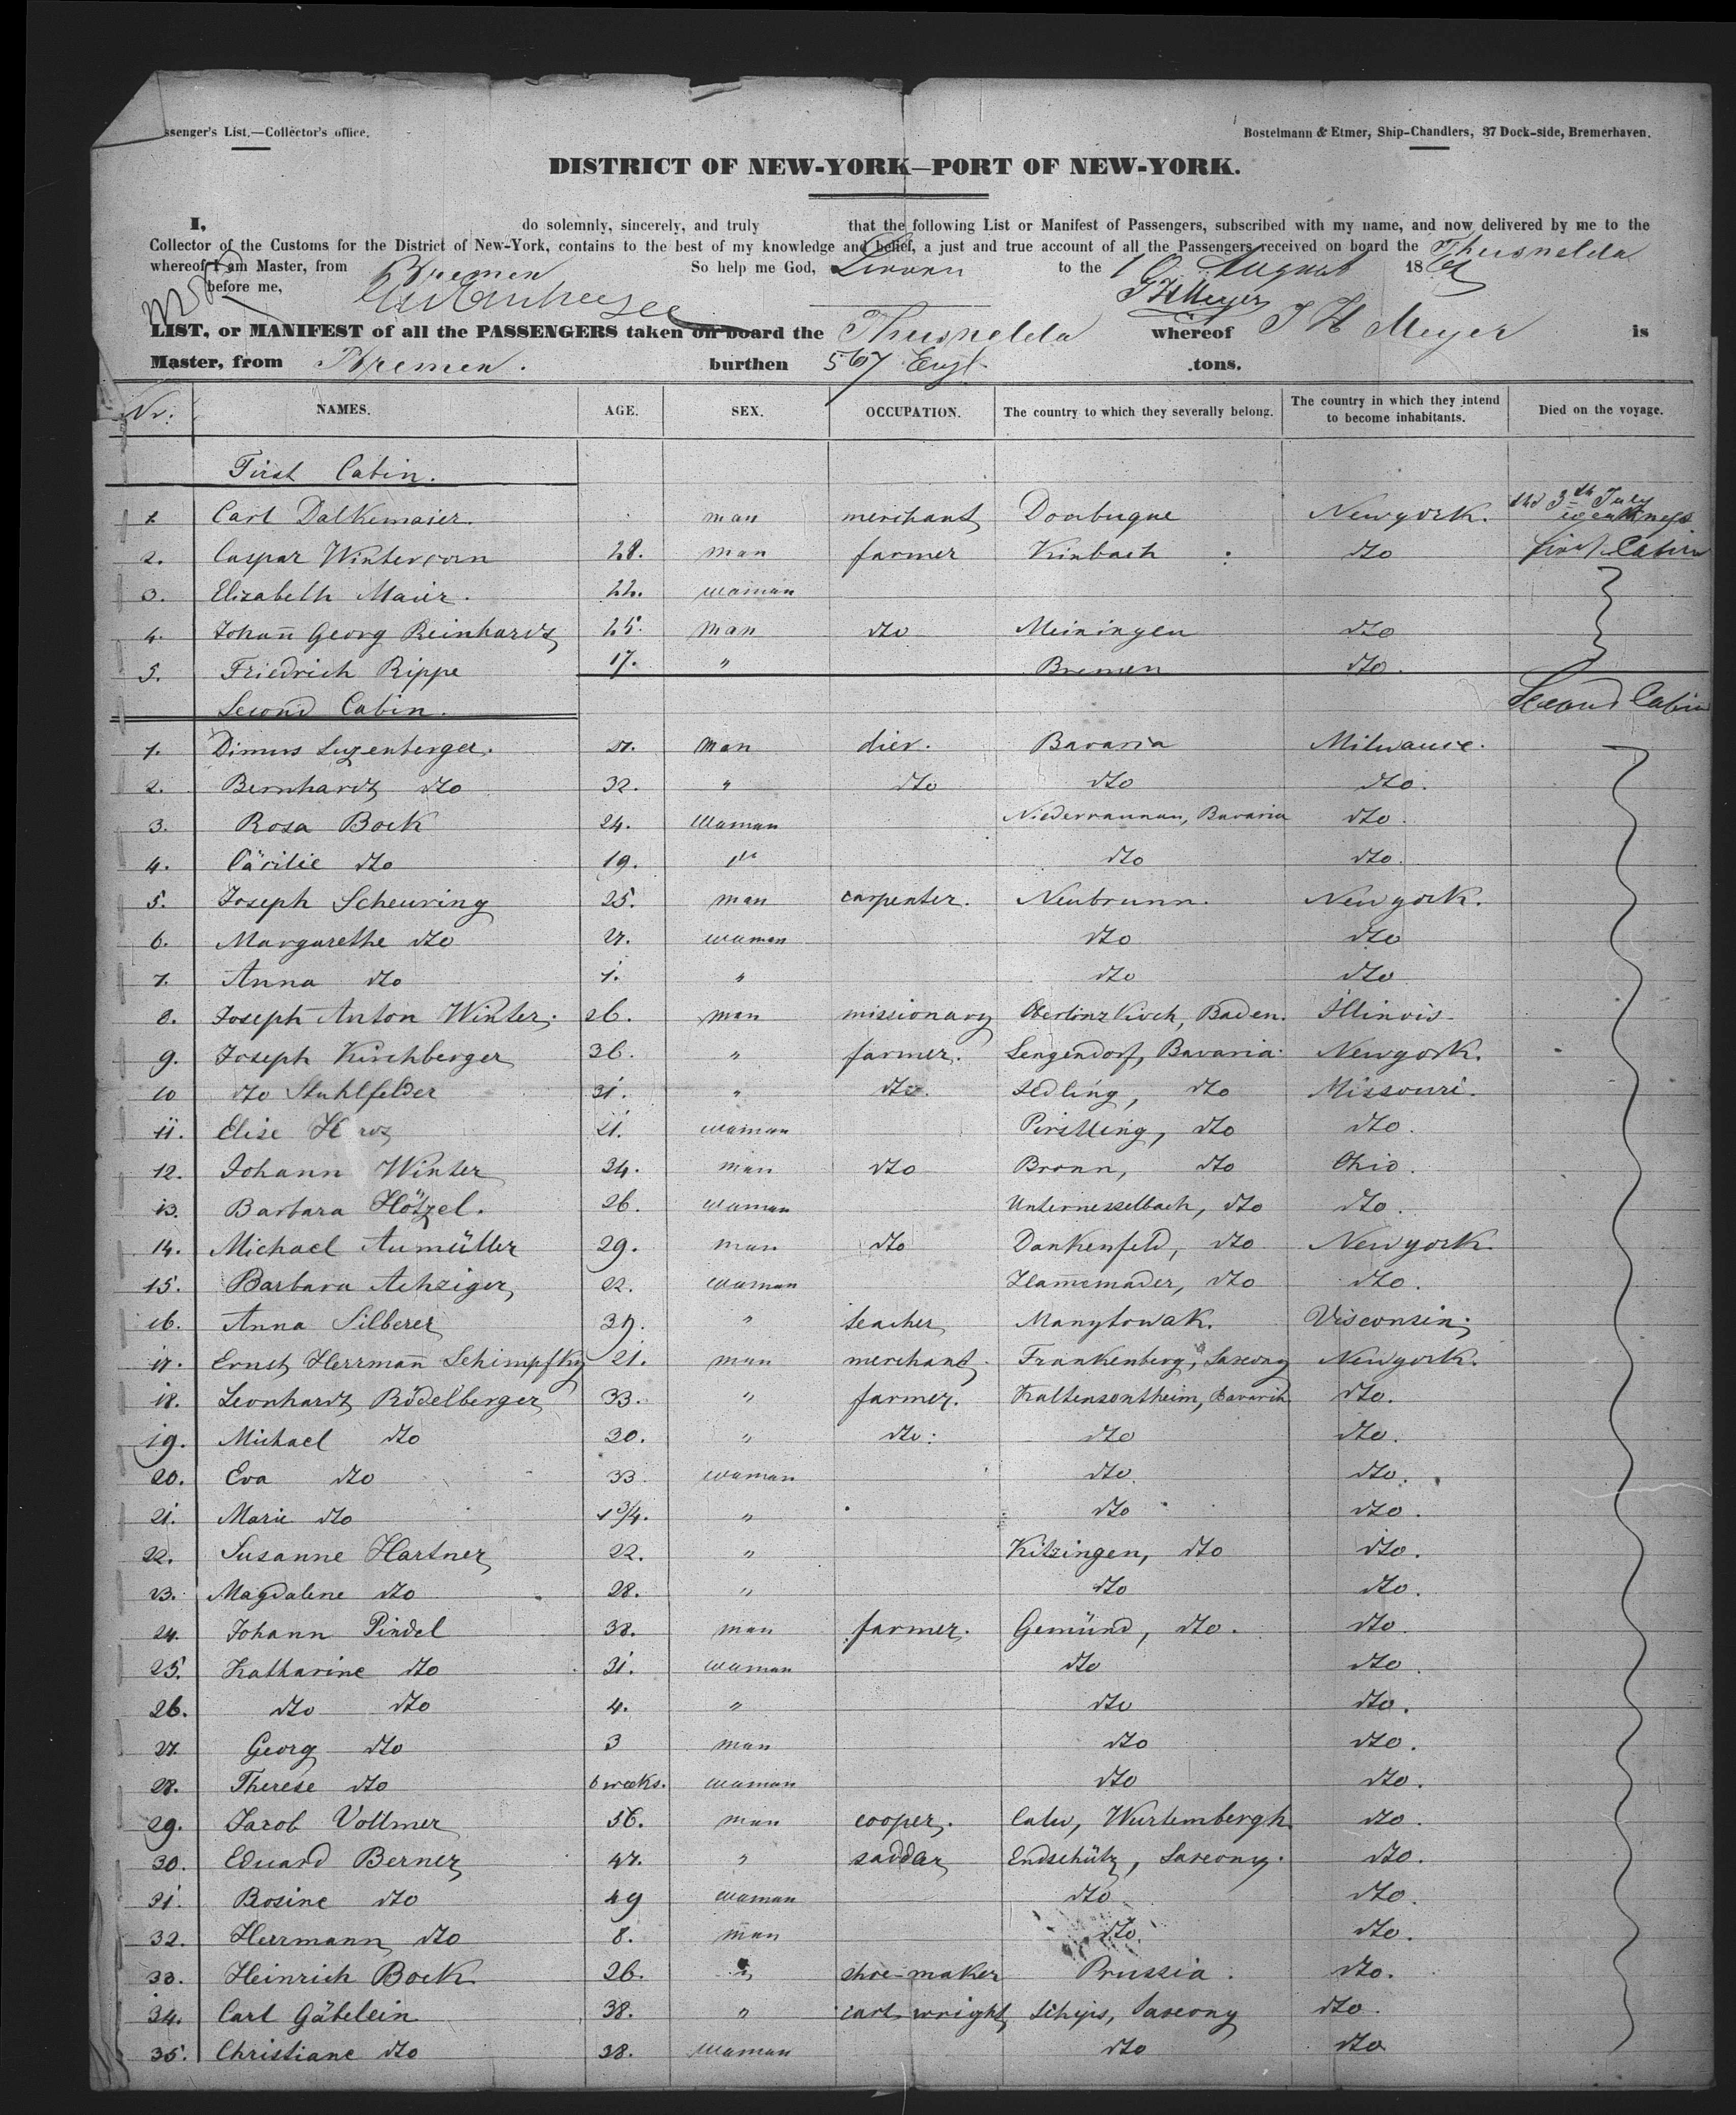 ssenger's List.—Collector's office.
Bostelmann & Etmer, Ship-Chandlers, 37 Dock-side, Bremerhaven.
DISTRICT OF NEW-YORK—PORT OF NEW-YORK.
I, do solemnly, sincerely, and truly that the following List or Manifest of Passengers, subscribed with my name, and now delivered by me to the
Collector of the Customs for the District of New-York, contains to the best of my knowledge and belief, a just and true account of all the Passengers received on board the Thusnelda
whereof I am Master, from Bremen So help me God, to the August 18
before me, J H Meyer
LIST, or MANIFEST of all the PASSENGERS taken on board the Thusnelda whereof J H Meyer is
Master, from Bremen. burthen 567 Engl. tons.
Nr. NAMES. AGE. SEX. OCCUPATION. The country to which they severally belong. The country in which they intend to become inhabitants. Died on the voyage.
First Cabin.
1. Carl Dalkemaier. man merchant Doubuque Newyork. 3th July
2. Caspar Wintercorn 28. man farmer Kinbach dto first Cabin
3. Elizabeth Maier. 22. waman
4. Johañ Georg Reinhardt 25. man dto Meiningen dto
5. Friedrich Rippe 17. " Bremen dto.
Second Cabin. Second Cabin
1. Dimus Luzenberger. 27. man dier. Bavaria Milwauce.
2. Bernhardt dto 32. " dto dto dto.
3. Rosa Bock 24. waman Niederraunau, Bavaria dto.
4. Cäcilie dto 19. " dto dto.
5. Joseph Scheuring 25. man carpenter. Neubrunn. Newyork.
6. Margarethe dto 27. waman dto dto
7. Anna dto 1. " dto dto
8. Joseph Anton Winter. 26. man missionary Baden. Illinois.
9. Joseph Kirchberger 36. " farmer. Lengendorf, Bavaria. Newyork.
10 dto Stuhlfelder 31. " dto. Sedling, dto Missouri.
11. Elise 21. waman dto dto.
12. Johann Winter 34. man dto Bronn, dto Ohio.
13. Barbara Hötzel. 26. waman Unternesselbach, dto dto.
14. Michael Aumüller 29. man dto Dankenfeld, dto Newyork.
15. Barbara Achziger 22. waman dto dto.
16. Anna Silberer 39. " teacher Manytowak. Visconsin.
17. Ernst Herrmañ Schimpfky 21. man merchant. Frankenberg, Saxeony Newyork.
18. Leonhardt Rödelberger 33. " farmer. Kaltensontheim, Bavaria dto.
19. Michael dto 30. " dto. dto dto.
20. Eva dto 33 waman dto. dto.
21. Marie dto 1 3/4. " dto dto.
22. Susanne Hartner 22. " Kitzingen, dto dto.
23. Magdalene dto 28. " dto dto.
24. Johann Pindel 38. man farmer. Gemünd, dto. dto.
25. Katharine dto 31. waman dto dto.
26. dto dto 4. " dto dto.
27. Georg dto 3 man dto dto.
28. Therese dto 6 weeks. waman dto dto.
29. Jacob Vollmer 56. man cooper. Calw, Wurtembergh. dto.
30. Eduard Berner 47. " saddar Endschütz, Saxeony. dto.
31. Rosine dto 49 waman dto dto.
32. Herrmann dto 8. man dto. dto.
33. Heinrich Bock 26. " shoe-maker Prussia. dto.
34. Carl Gäbelein 38. " cart-wright Saxeony dto.
35. Christiane dto 38. waman dto dto